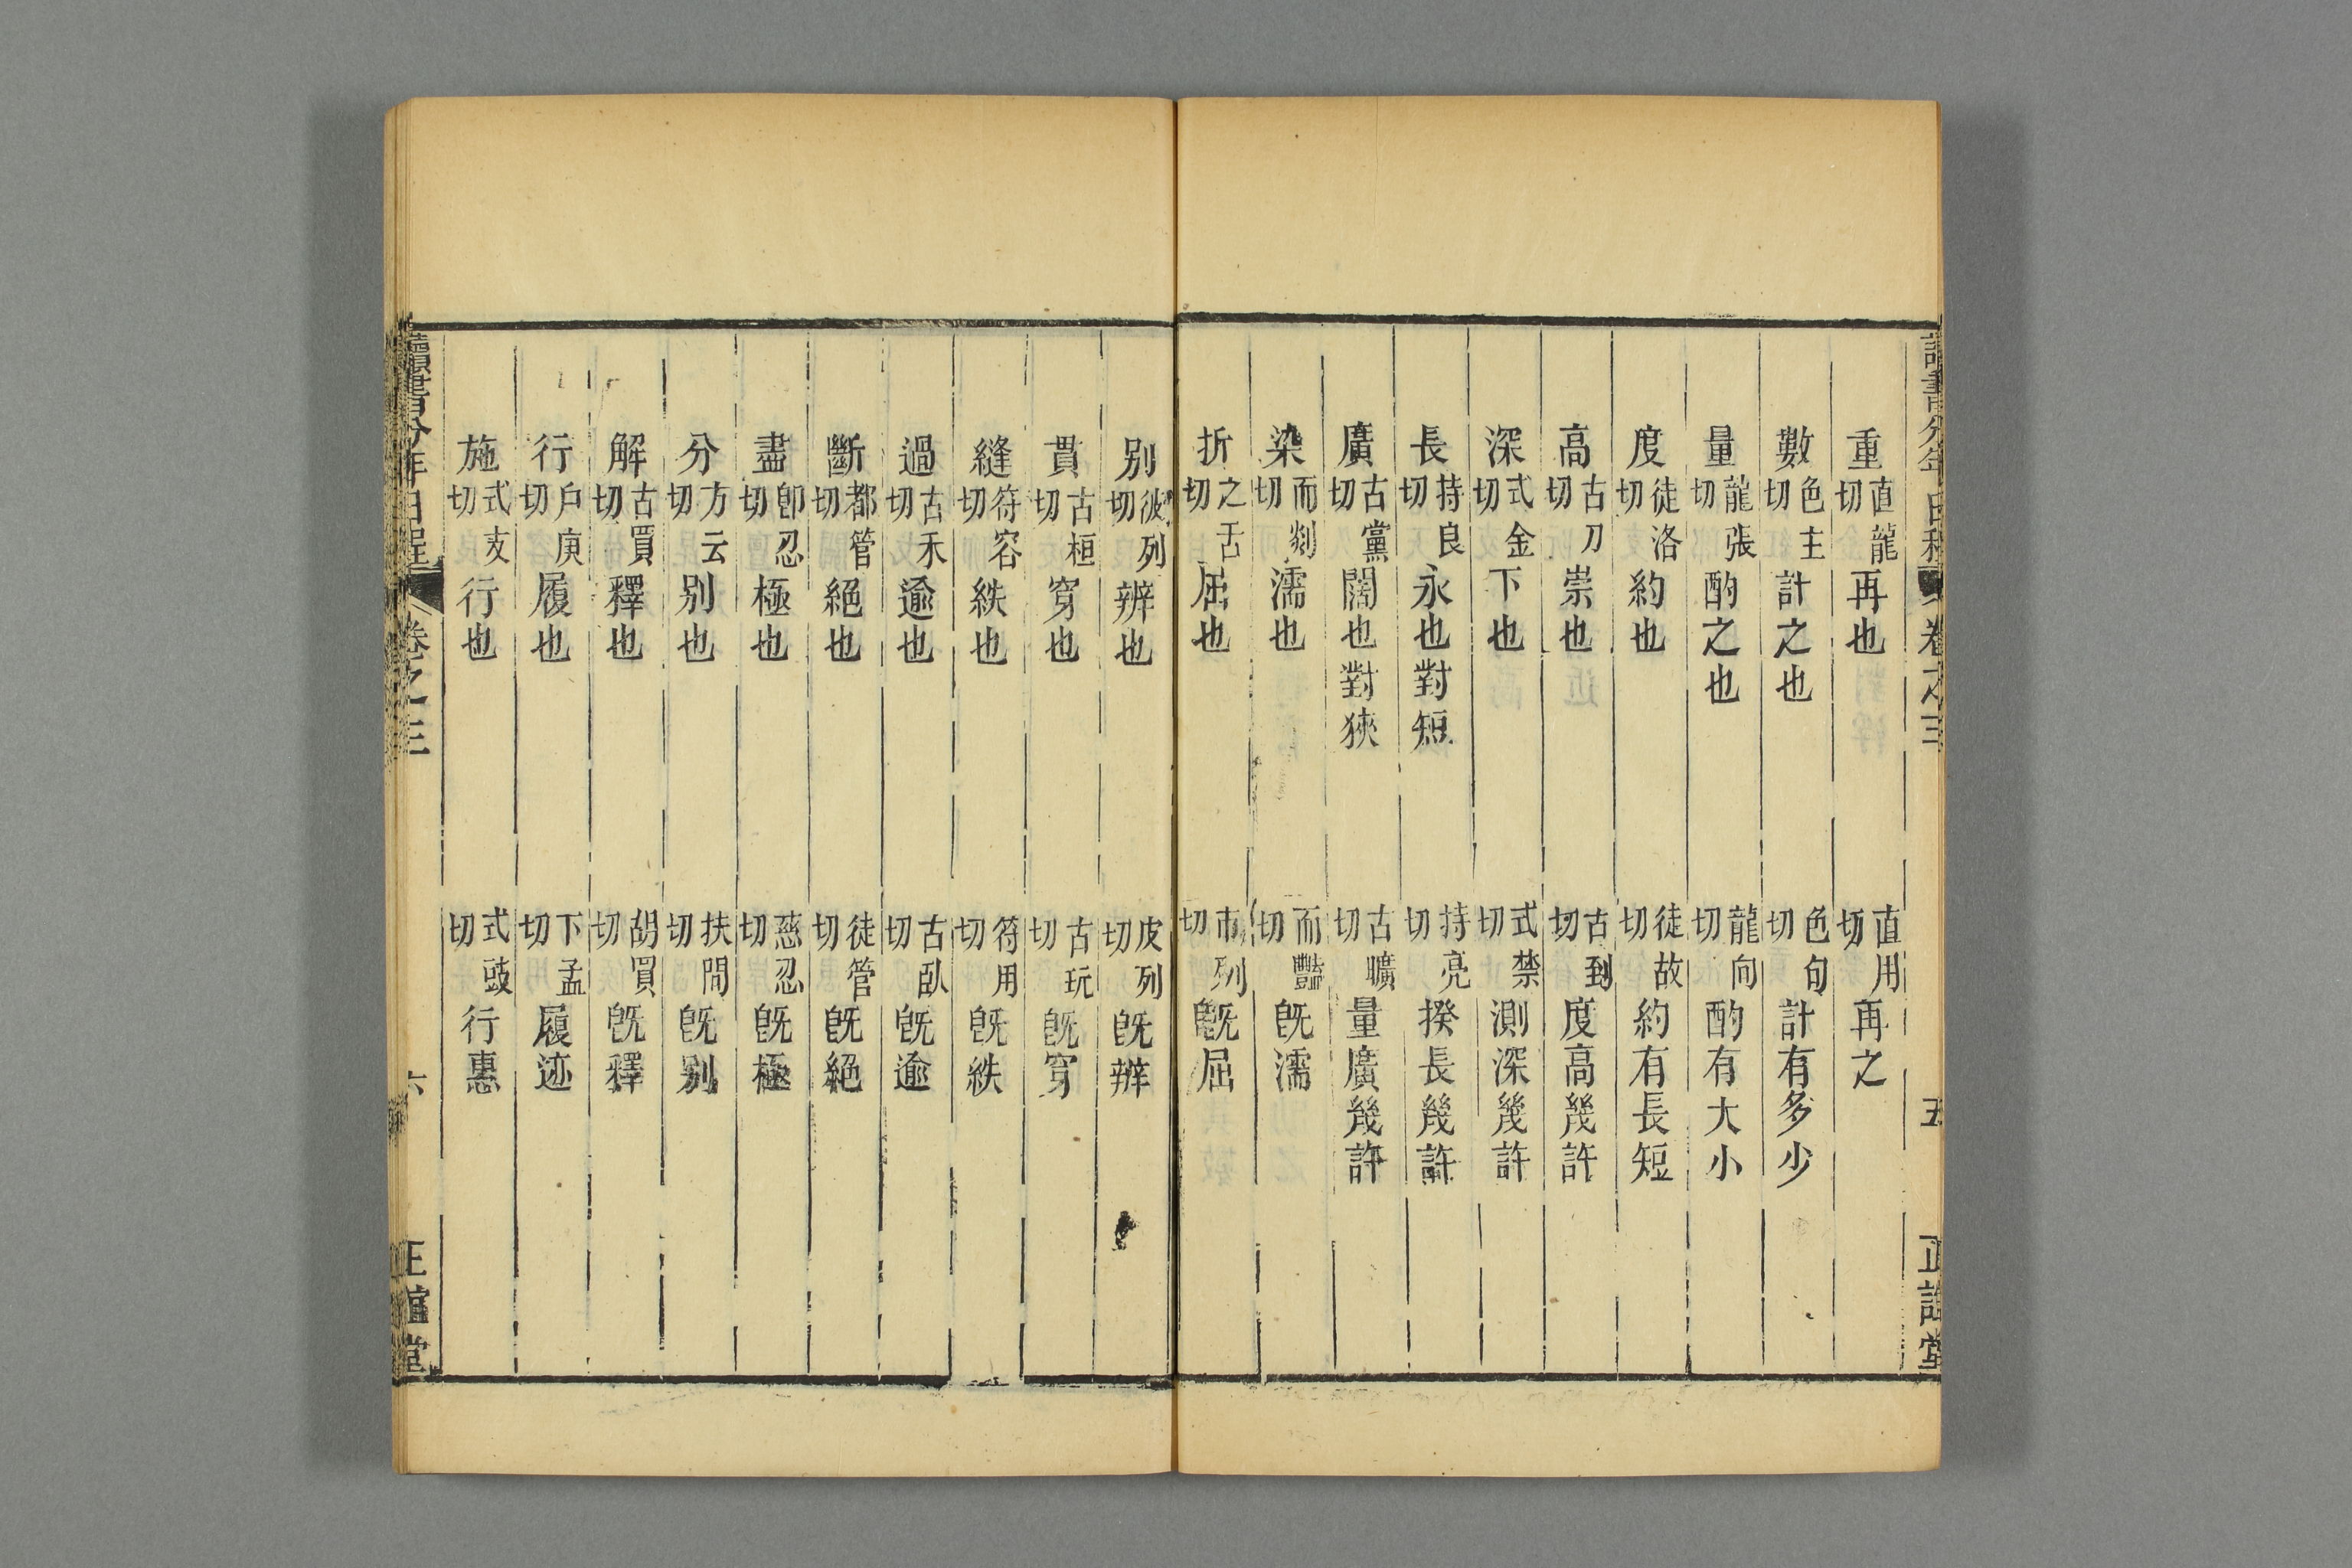 讀書分年日程 卷之三 五 正誼堂
重 直龍切 再也 直用切 再之
數 色主切 計之也 色句切 計有多少
量 龍張切 酌之也 龍向切 酌有大小
度 徒洛切 約也 徒故切 約有長短
高 古刀切 崇也 古到切 度高幾許
深 式金切 下也 式禁切 測深幾許
長 持良切 永也對短 持亮切 揆長幾許
廣 古黨切 闊也對狹 古曠切 量廣幾許
染 而剡切 濡也 而豔切 旣濡
折 之舌切 屈也 市列切 旣屈
别 彼列切 辨也 皮列切 旣辨
貫 古桓切 穿也 古玩切 旣穿
縫 符容切 紩也 符用切 旣紩
過 古禾切 逾也 古臥切 旣逾
斷 都管切 絕也 徒管切 旣絕
盡 卽忍切 極也 慈忍切 旣極
分 方云切 别也 扶問切 旣别
解 古買切 釋也 胡買切 旣釋
行 戶庚切 履也 下孟切 履迹
施 式支切 行也 式豉切 行惠
讀書分年日程 卷之三 六 正誼堂